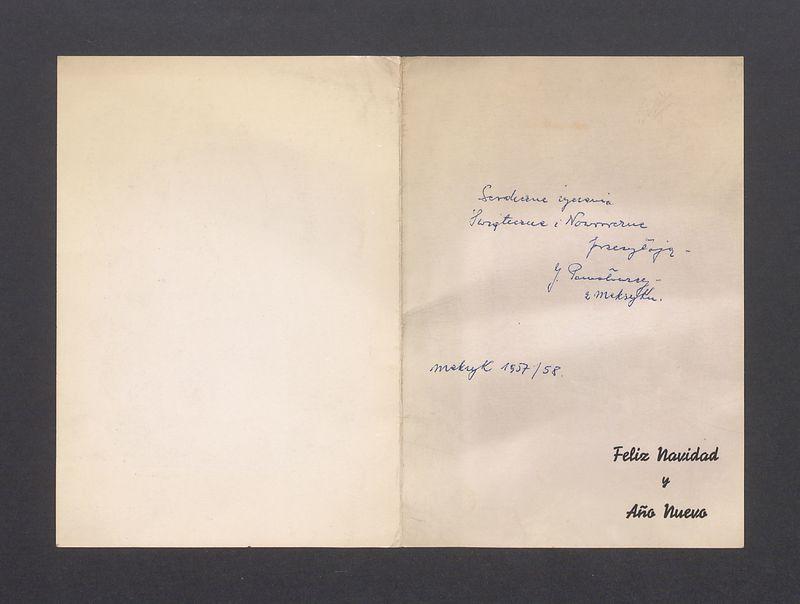 Serdeczne życzenia
Świąteczne i Noworoczne
przesyłają -
J.
z Meksyku.
Meksyk 1957/58.
Feliz Navidad
y
Año Nuevo